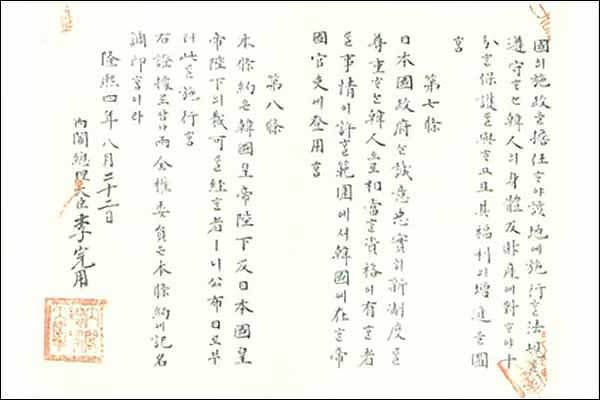 國의施政을擔任ᄒᆞ야該地에施行ᄒᆞᆯ法規를
遵守ᄒᆞᄂᆞᆫ韓人의身體及財産에對ᄒᆞ야十
分ᄒᆞᆫ保護를與ᄒᆞ고且其福利의增進을圖
ᄒᆞᆷ
第七條
日本國政府ᄂᆞᆫ誠意忠實히新制度를
尊重ᄒᆞᄂᆞᆫ韓人으로相當ᄒᆞᆫ資格이有ᄒᆞᆫ者
를事情이許ᄒᆞᄂᆞᆫ範圍에셔韓國에在ᄒᆞᆫ帝
國官吏에登用ᄒᆞᆷ
第八條
本條約은韓國皇帝陛下及日本國皇
帝陛下의裁可를經ᄒᆞᆫ者ㅣ니公布日로부
터此를施行ᄒᆞᆷ
右證據로삼아兩全權委員은本條約에記名
調印ᄒᆞᆷ이라
隆熙四年八月二十二日
內閣總理大臣李完用